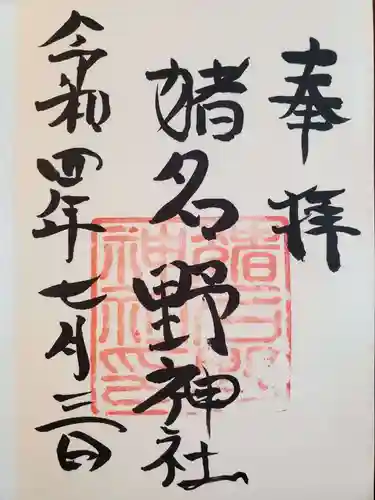 奉拝
猪名野神社
令和四年七月三日
猪名野神社印